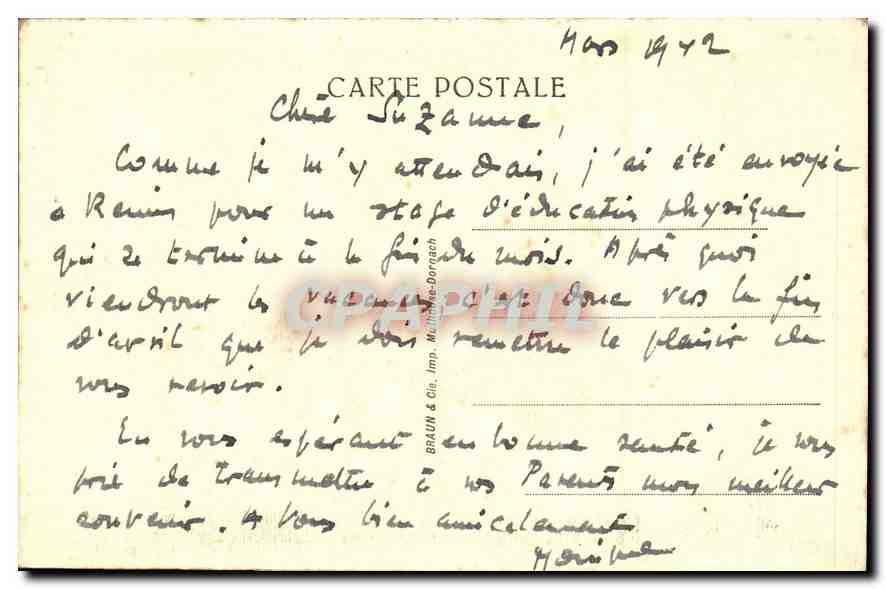 Mars 1942
CARTE POSTALE
Chère Suzanne,
Comme je m'y attendais, j'ai été envoyée
a Reims pour un stage d'éducation physique
qui se termine à la fin du mois. Après quoi
viendront les vacances, c'est donc vers la fin
d'avril que je dois remettre le plaisir de
vous revoir.
En vous espérant en bonne santé, je vous
prie de transmettre à vos Parents mon meilleur
souvenir. A Vous bien amicalement
BRAUN & Cie, Imp. Mulhouse-Dornach
CPAPHIL